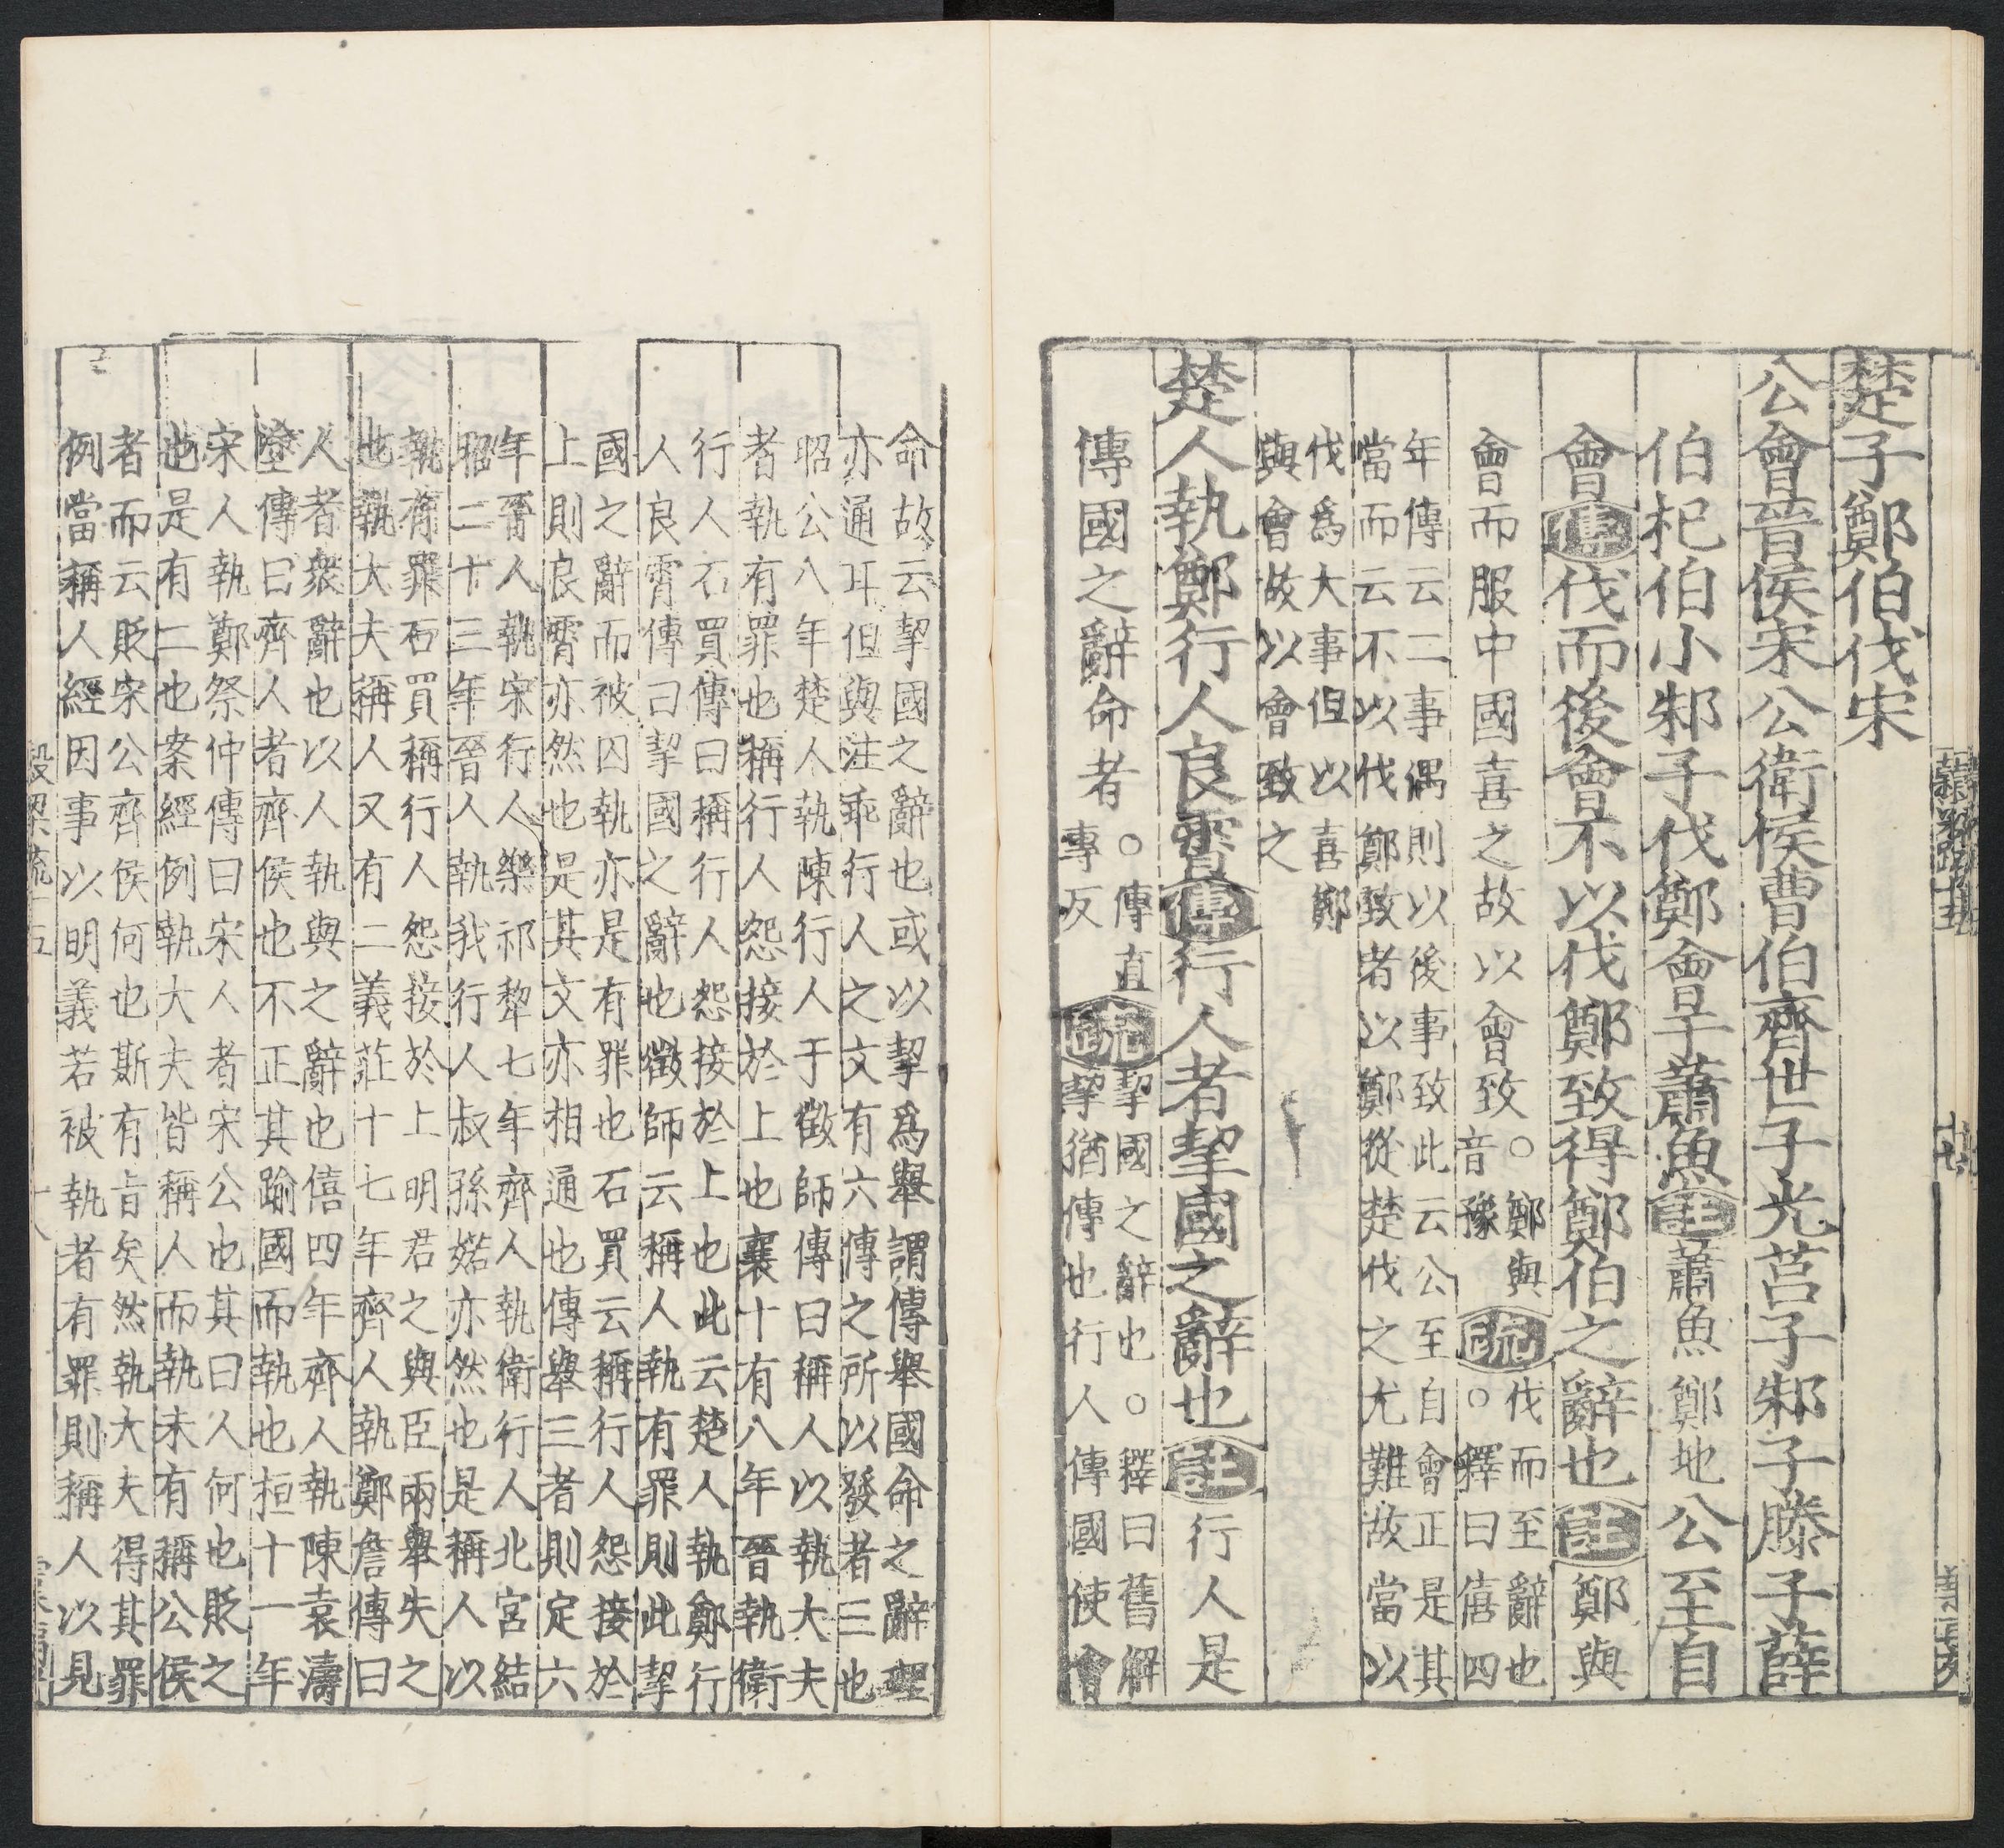 楚子鄭伯伐宋
公會晉侯宋公衛侯曹伯齊世子光莒子邾子滕子薛
伯杞伯小邾子伐鄭會于蕭魚註蕭魚鄭地公至自
會傳伐而後會不以伐鄭致得鄭伯之辭也註鄭與
會而服中國喜之故以會致○鄭與音豫疏伐而至辭也○釋曰僖四
年傳云二事偶則以後事致此云公至自會正是其
當而云不以伐鄭致者以鄭從楚伐之尤難故當以
伐爲大事但以喜鄭
與會故以會致之
楚人執鄭行人良霄傳行人者挈國之辭也註行人是
傳國之辭命者○傳直專反疏挈國之辭也○釋曰舊解挈猶傳也行人傳國使會
命故云挈國之辭也或以挈爲舉謂傳舉國命之辭理
亦通耳但與注乖行人之文有六傳之所以發者三也
昭公八年楚人執陳行人于徵師傳曰稱人以執大夫
者執有罪也稱行人怨接於上也襄十有八年晉執衛
行人石買傳曰稱行人怨接於上也此云楚人執鄭行
人良霄傳曰挈國之辭也徵師云稱人執有罪則此挈
國之辭而被囚執亦是有罪也石買云稱行人怨接於
上則良霄亦然也是其文亦相通也傳舉三者則定六
年晉人執宋行人樂祁犂七年齊人執衛行人北宮結
昭二十三年晉人執我行人叔孫婼亦然也是稱人以
執有罪石買稱行人怨接於上明君之與臣兩舉失之
也執大夫稱人又有二義莊十七年齊人執鄭詹傳曰
人者衆辭也以人執與之辭也僖四年齊人執陳袁濤
塗傳曰齊人者齊侯也不正其踰國而執也桓十一年
宋人執鄭祭仲傳曰宋人者宋公也其曰人何也貶之
也是有二也案經例執大夫皆稱人而執未有稱公侯
者而云貶宋公齊侯何也斯有旨矣然執大夫得其罪
例當稱人經因事以明義若被執者有罪則稱人以見